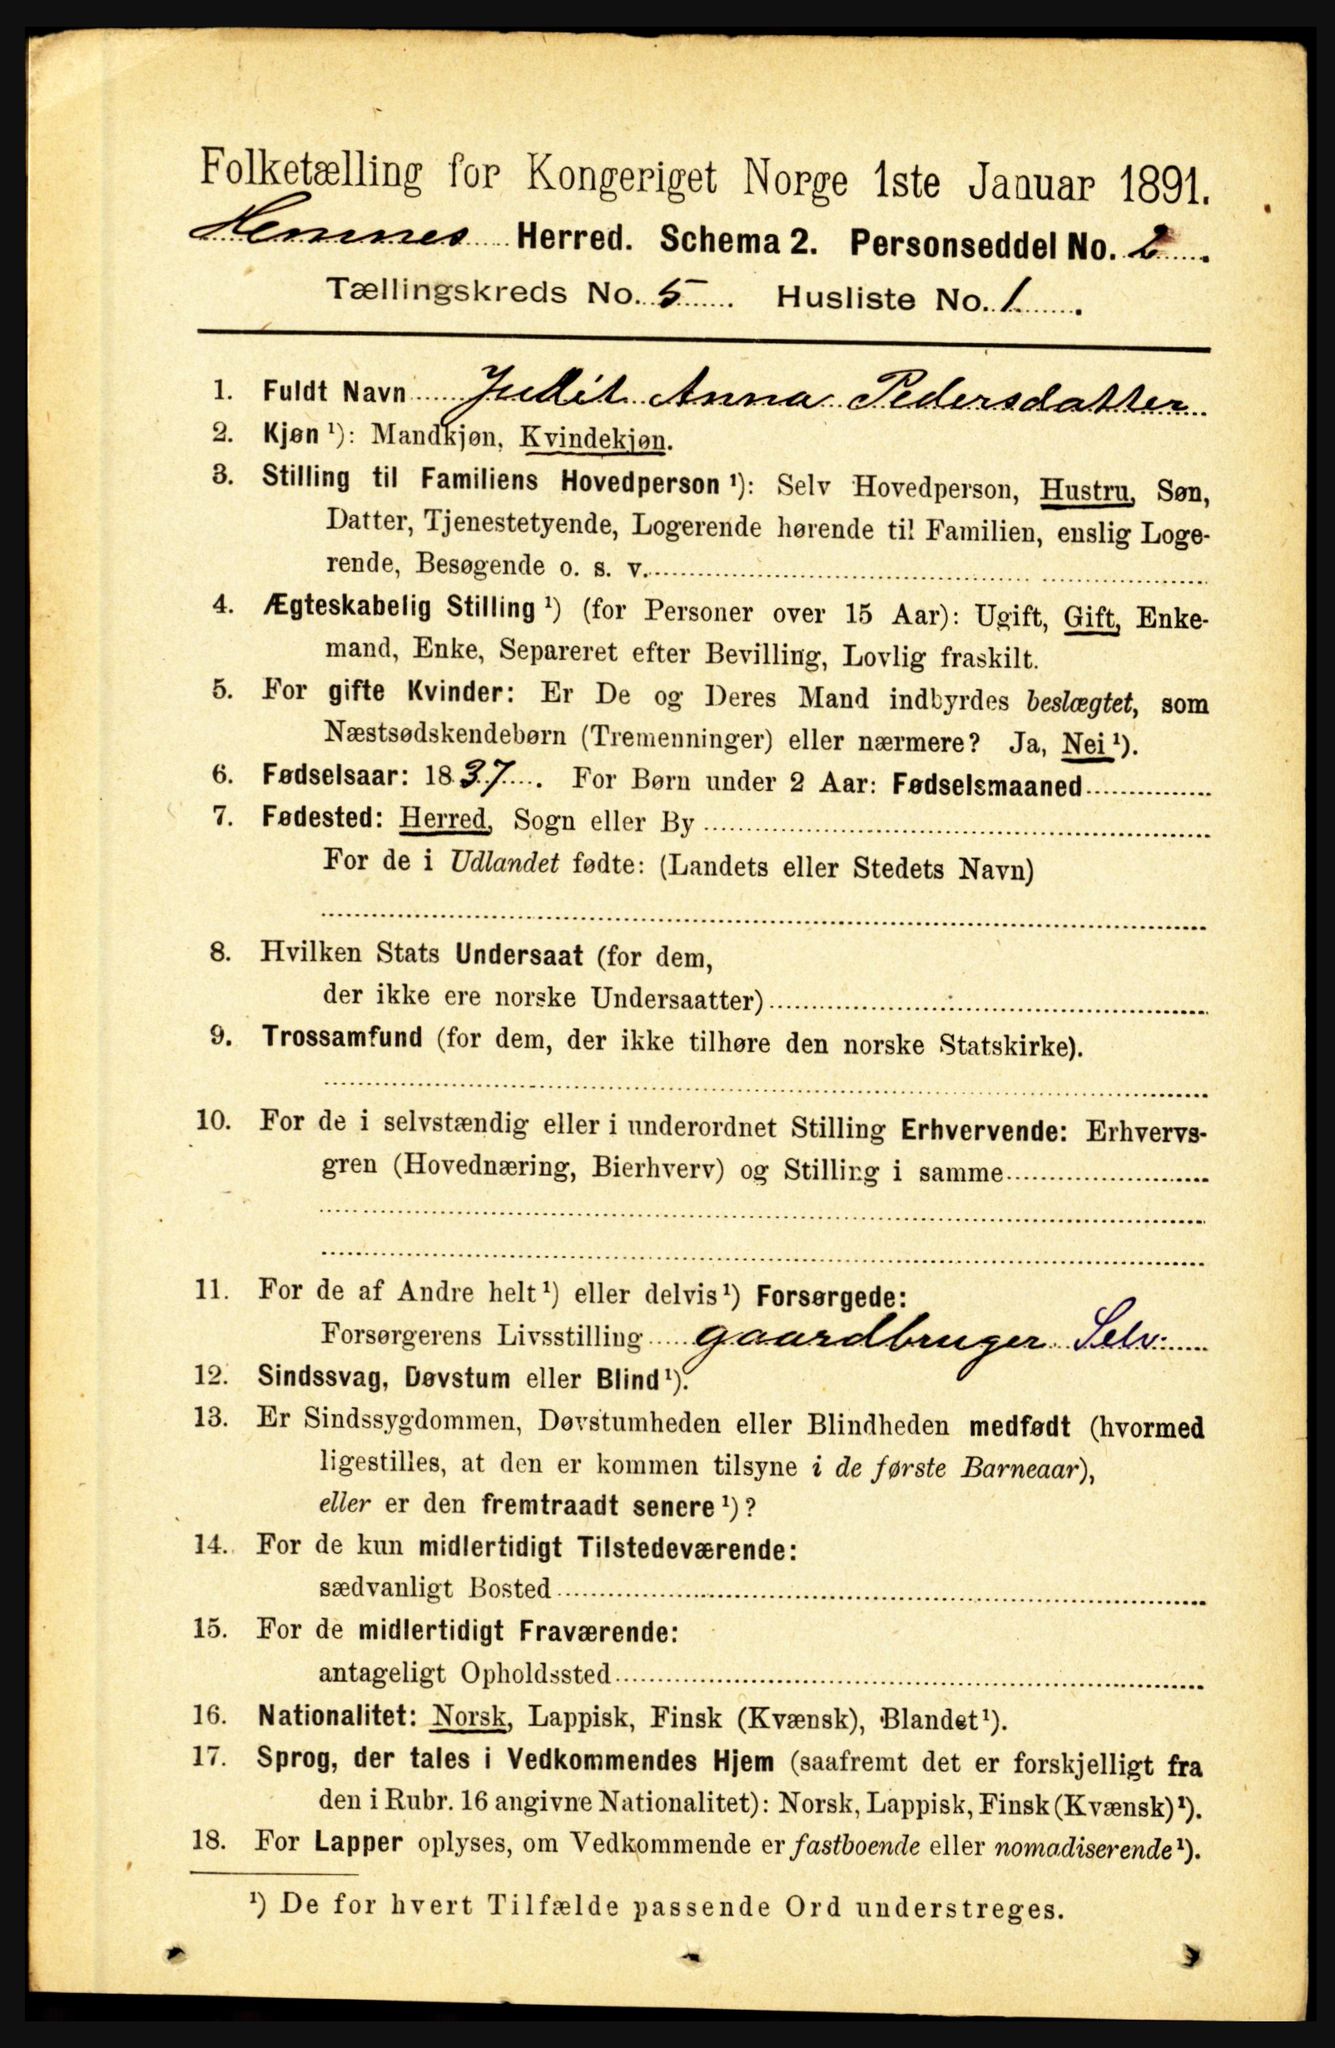 Folketælling for Kongeriget Norge 1ste Januar 1891.
Hemnes Herred. Schema 2. Personseddel No. 2
Tællingskreds No. 5 Husliste No. 1
1. Fuldt Navn Judit Anna Pedersdatter
2. Kjøn ¹): Mandkjøn, Kvindekjøn.
3. Stilling til Familiens Hovedperson ¹): Selv Hovedperson, Hustru, Søn,
Datter, Tjenestetyende, Logerende hørende til Familien, enslig Loge-
rende, Besøgende o. s. v.
4. Ægteskabelig Stilling ¹) (for Personer over 15 Aar): Ugift, Gift, Enke-
mand, Enke, Separeret efter Bevilling, Lovlig fraskilt.
5. For gifte Kvinder: Er De og Deres Mand indbyrdes beslægtet, som
Næstsødskendebørn (Tremenninger) eller nærmere? Ja, Nei ¹).
6. Fødselsaar: 1837. For Børn under 2 Aar: Fødselsmaaned
7. Fødested: Herred, Sogn eller By
For de i Udlandet fødte: (Landets eller Stedets Navn)
8. Hvilken Stats Undersaat (for dem,
der ikke ere norske Undersaatter)
9. Trossamfund (for dem, der ikke tilhøre den norske Statskirke).
10. For de i selvstændig eller i underordnet Stilling Erhvervende: Erhvervs-
gren (Hovednæring, Bierhverv) og Stilling i samme
11. For de af Andre helt ¹) eller delvis ¹) Forsørgede:
Forsørgerens Livsstilling gaardbruger Selv.
12. Sindssvag, Døvstum eller Blind ¹).
13. Er Sindssygdommen, Døvstumheden eller Blindheden medfødt (hvormed
ligestilles, at den er kommen tilsyne i de første Barneaar),
eller er den fremtraadt senere ¹)?
14. For de kun midlertidigt Tilstedeværende:
sædvanligt Bosted
15. For de midlertidigt Fraværende:
antageligt Opholdssted
16. Nationalitet: Norsk, Lappisk, Finsk (Kvænsk), Blandet ¹).
17. Sprog, der tales i Vedkommendes Hjem (saafremt det er forskjelligt fra
den i Rubr. 16 angivne Nationalitet): Norsk, Lappisk, Finsk (Kvænsk) ¹).
18. For Lapper oplyses, om Vedkommende er fastboende eller nomadiserende ¹).
¹) De for hvert Tilfælde passende Ord understreges.